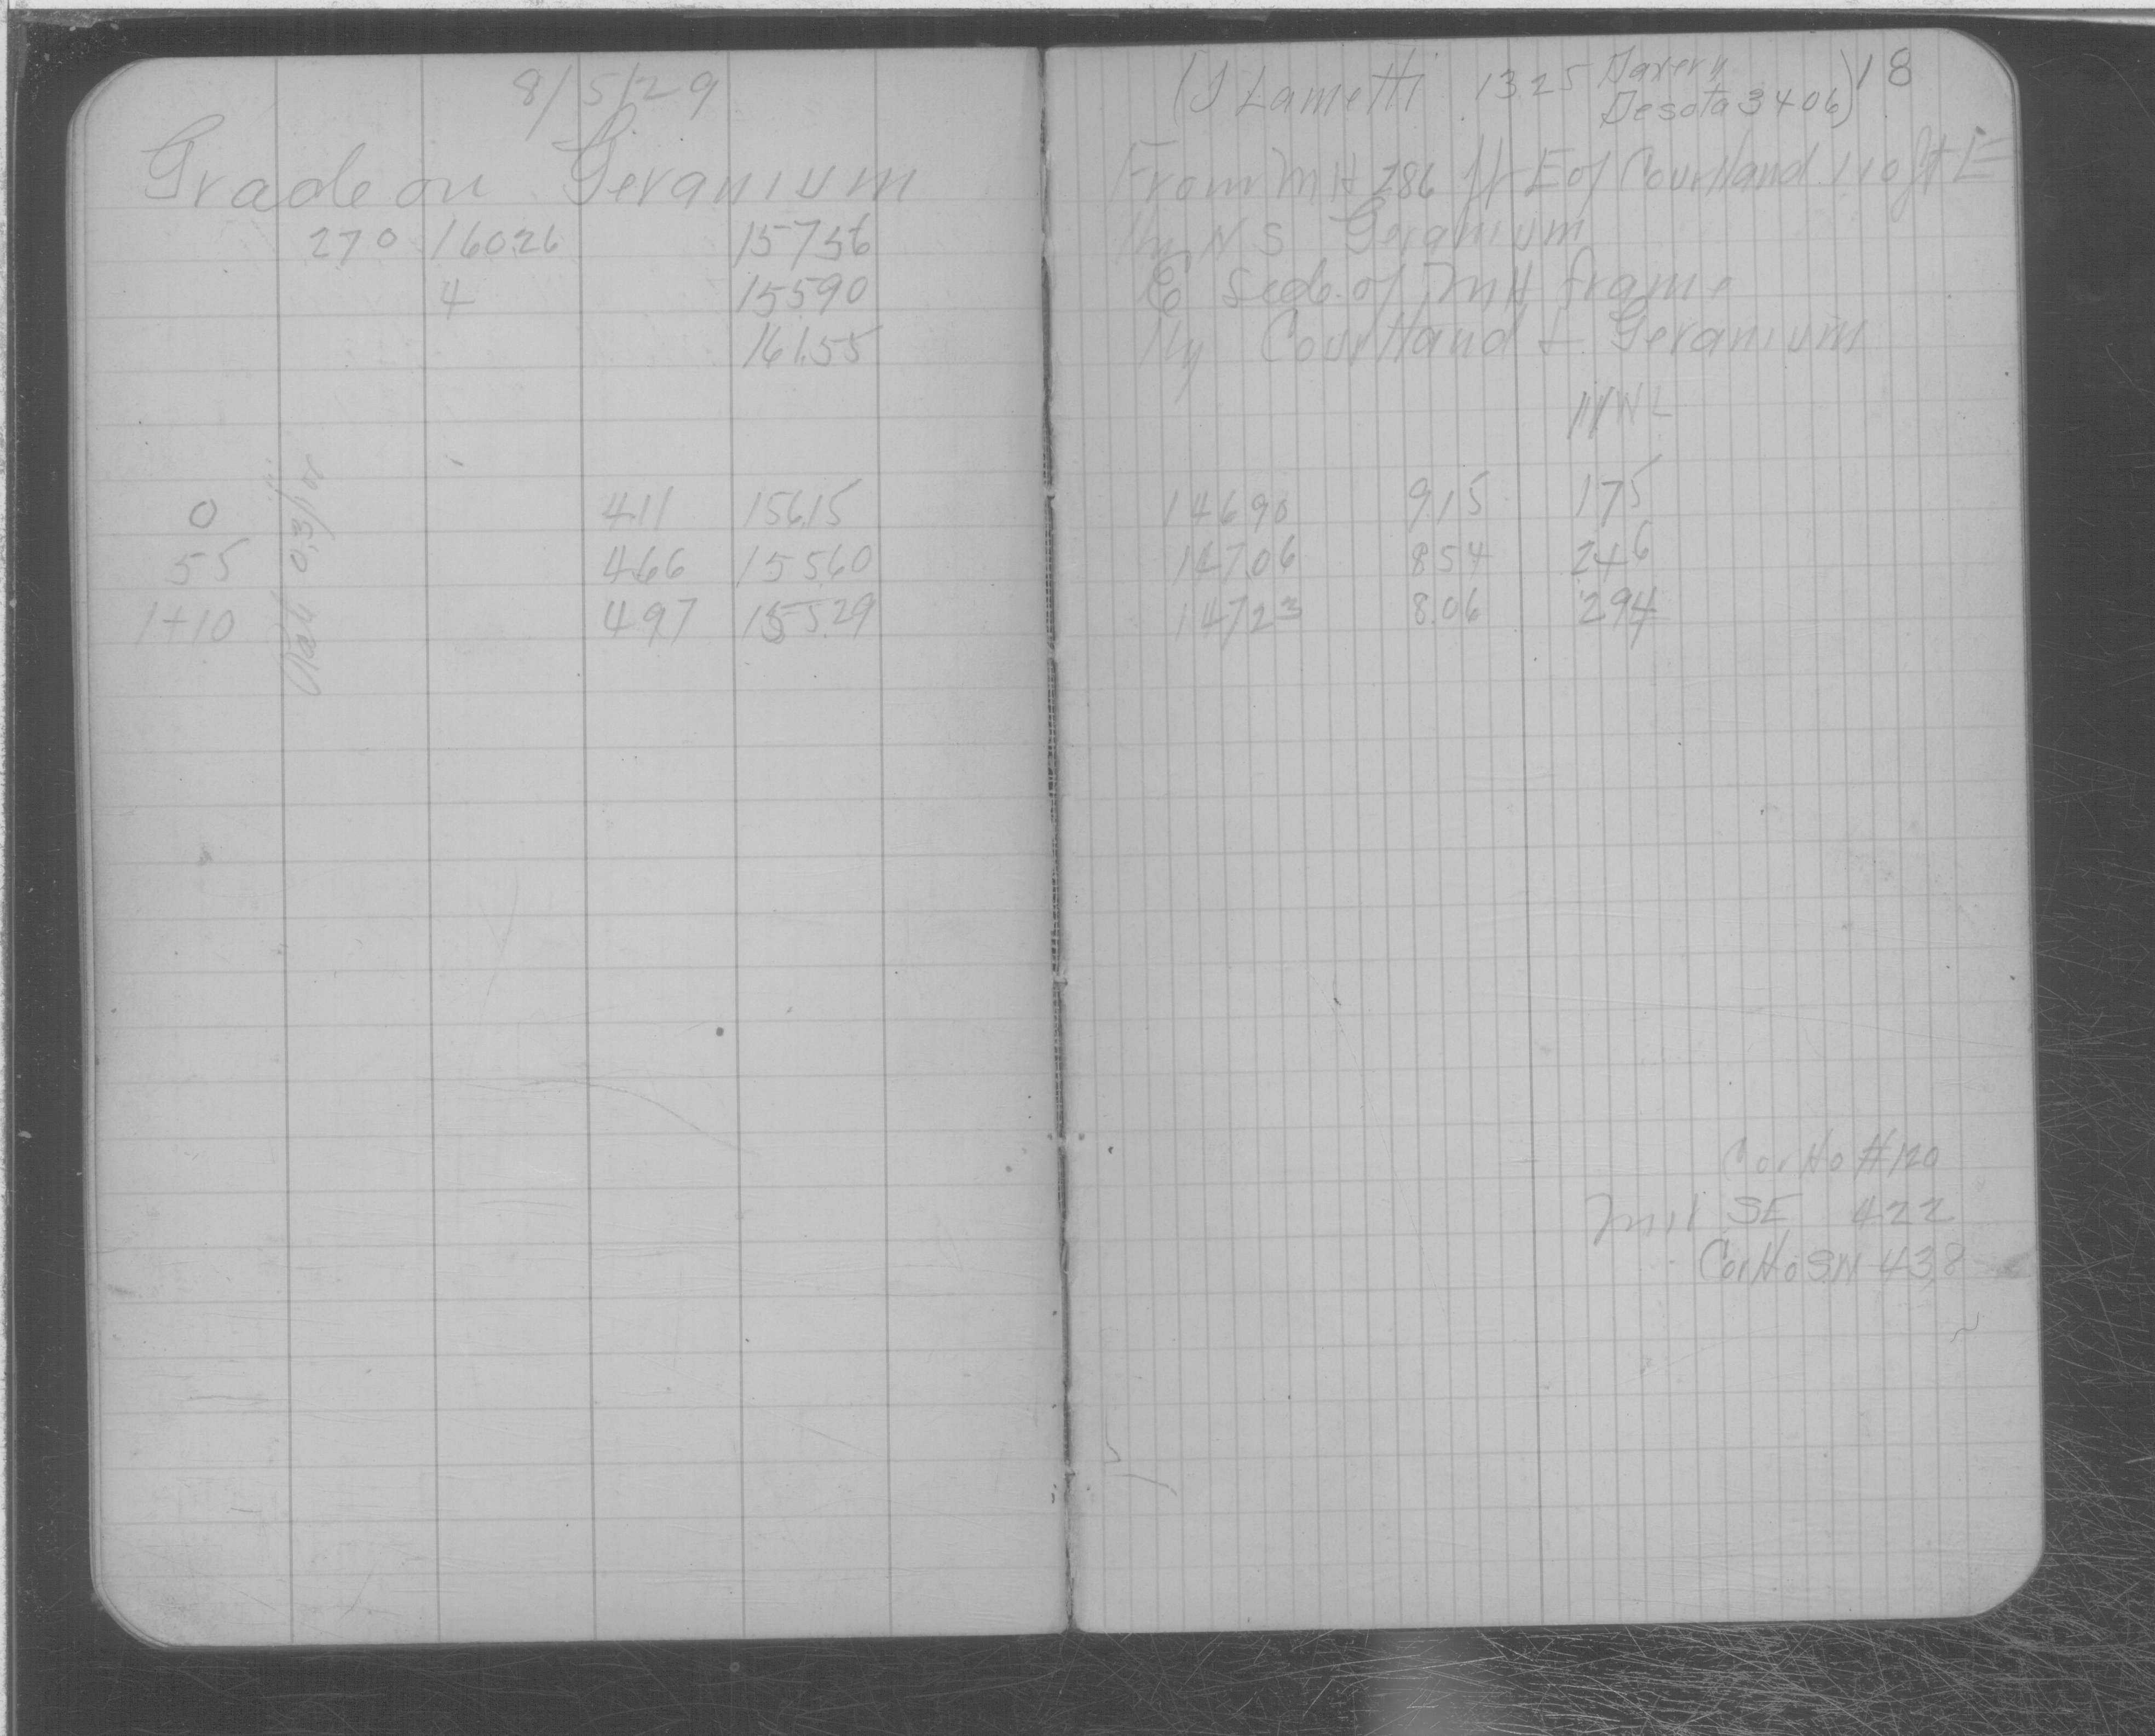 8/5/29
Grade on Geranium
270 160.26 157.56
4 155.90
161.55
0 4.11 156.15
55 4.66 155.60
1+10 4.97 155.29
Rate 0.3 per
18
(J Lametti 1325 Davern
Desota 3406)
From MH 286 ft E of Courtland 110 ft E
Hy N S Geranium
of MH frame
Hy Courtland & Geranium
146.90 9.15 175
147.06 8.54 246
147.23 8.06 294
Cor Ho #120
SE 422
Cor Ho 43.8